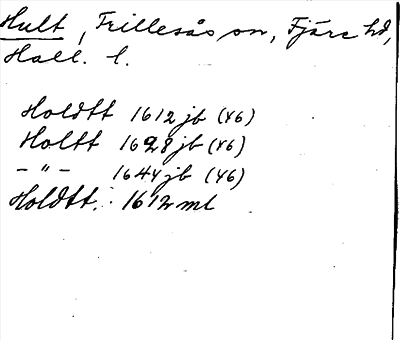 Hult, Frillesås sn, Fjäre hd,
Hall. l.
Holdtt 1612 jb (46)
Holtt 1628 jb (46)
- " - 1644 jb (46)
Holdtt. 1612 ml